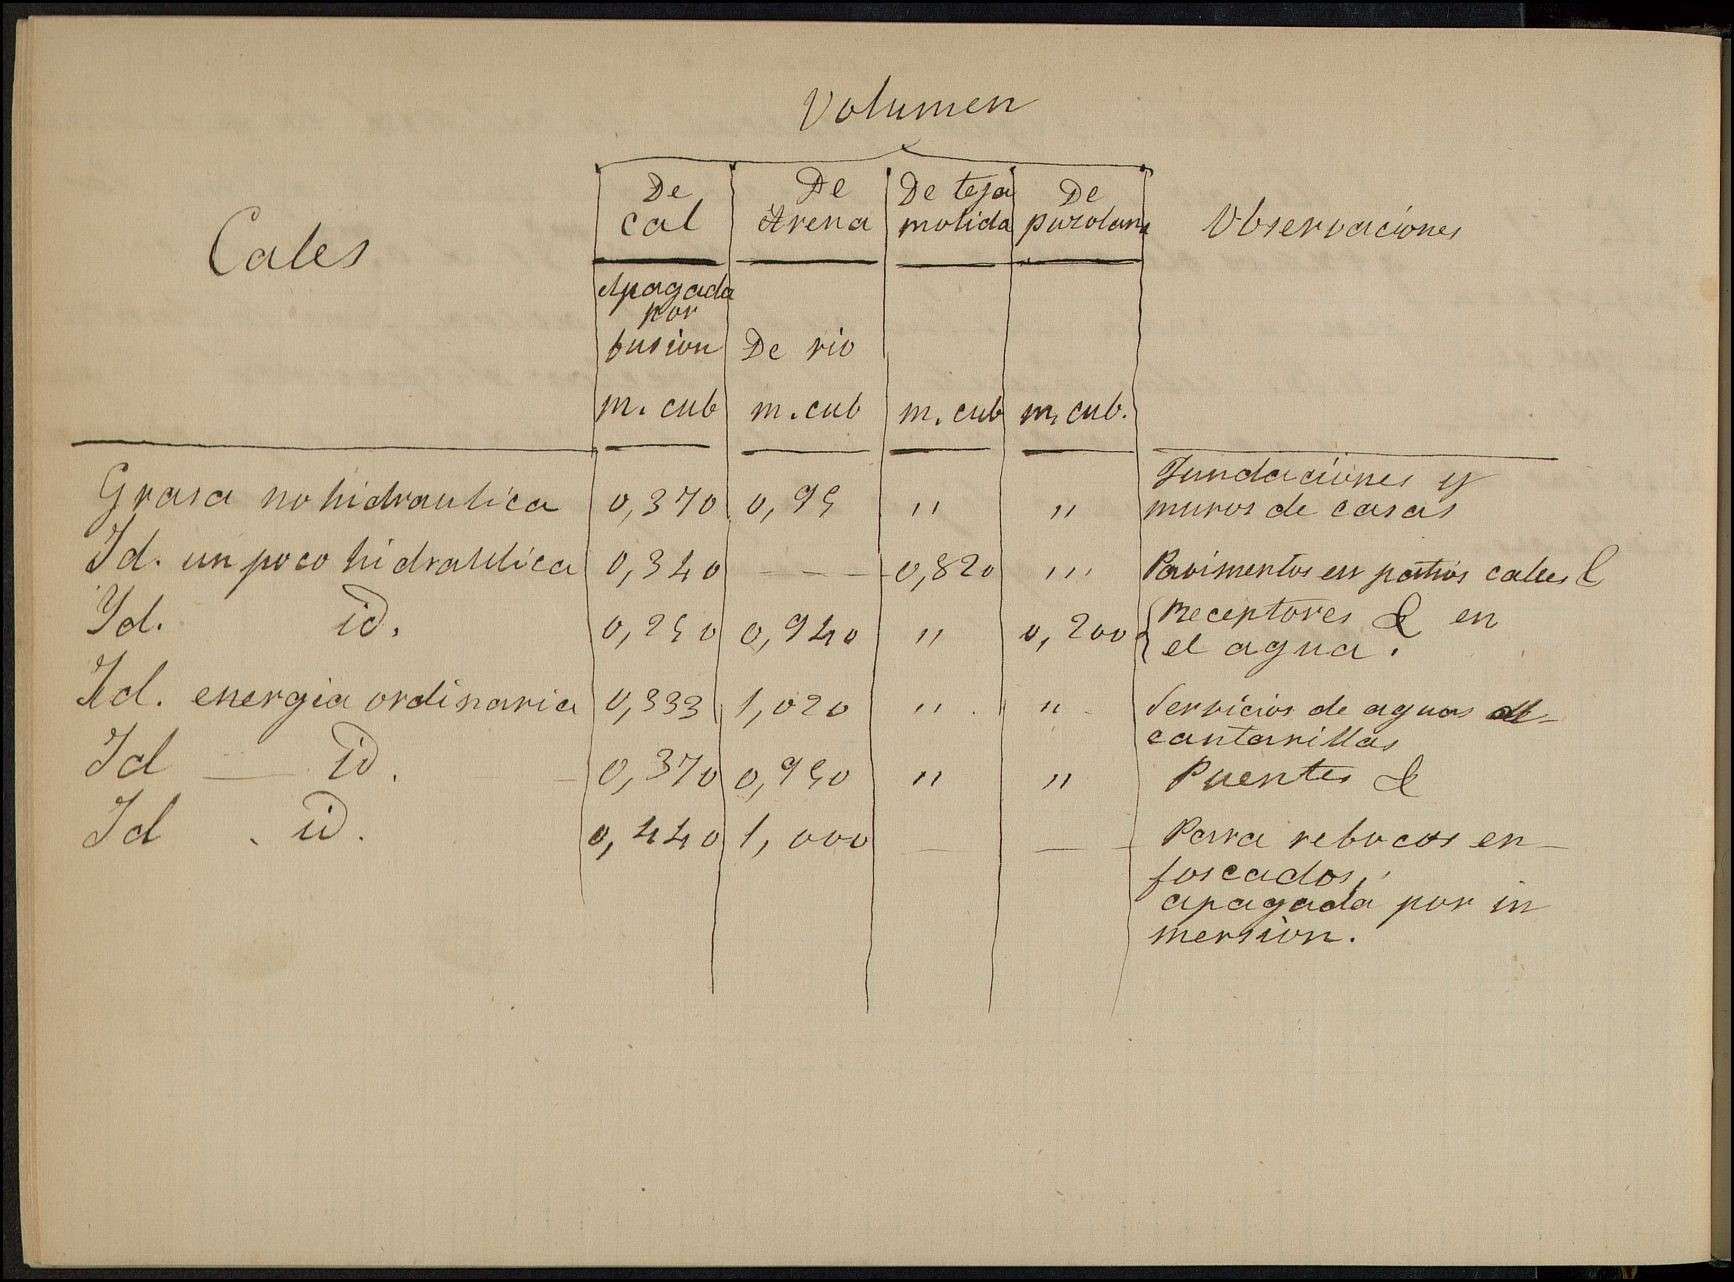 Volumen
Cales
De cal | De Arena | De teja molida | De puzolana | Observaciones
Apagada
por
fusion | De rio
m. cub | m. cub | m. cub | m. cub.
Grasa no hidraulica | 0,370 | 0,95 | " | " | Fundaciones y
muros de casas
Id. un poco hidraulica | 0,340 | — — | 0,820 | ''' | Pavimentos en patios calles &
Id. id. | 0,250 | 0,940 | " | 0,200 | Receptores & en
el agua.
Id. energia ordinaria | 0,333 | 1,020 | " | " | Servicios de aguas al-
cantarillas
Id — id. | 0,370 | 0,950 | " | " | Puentes &
Id . id. | 0,440 | 1,000 | — | — | Para rebocos en-
foscados,
apagada por in
mersion.